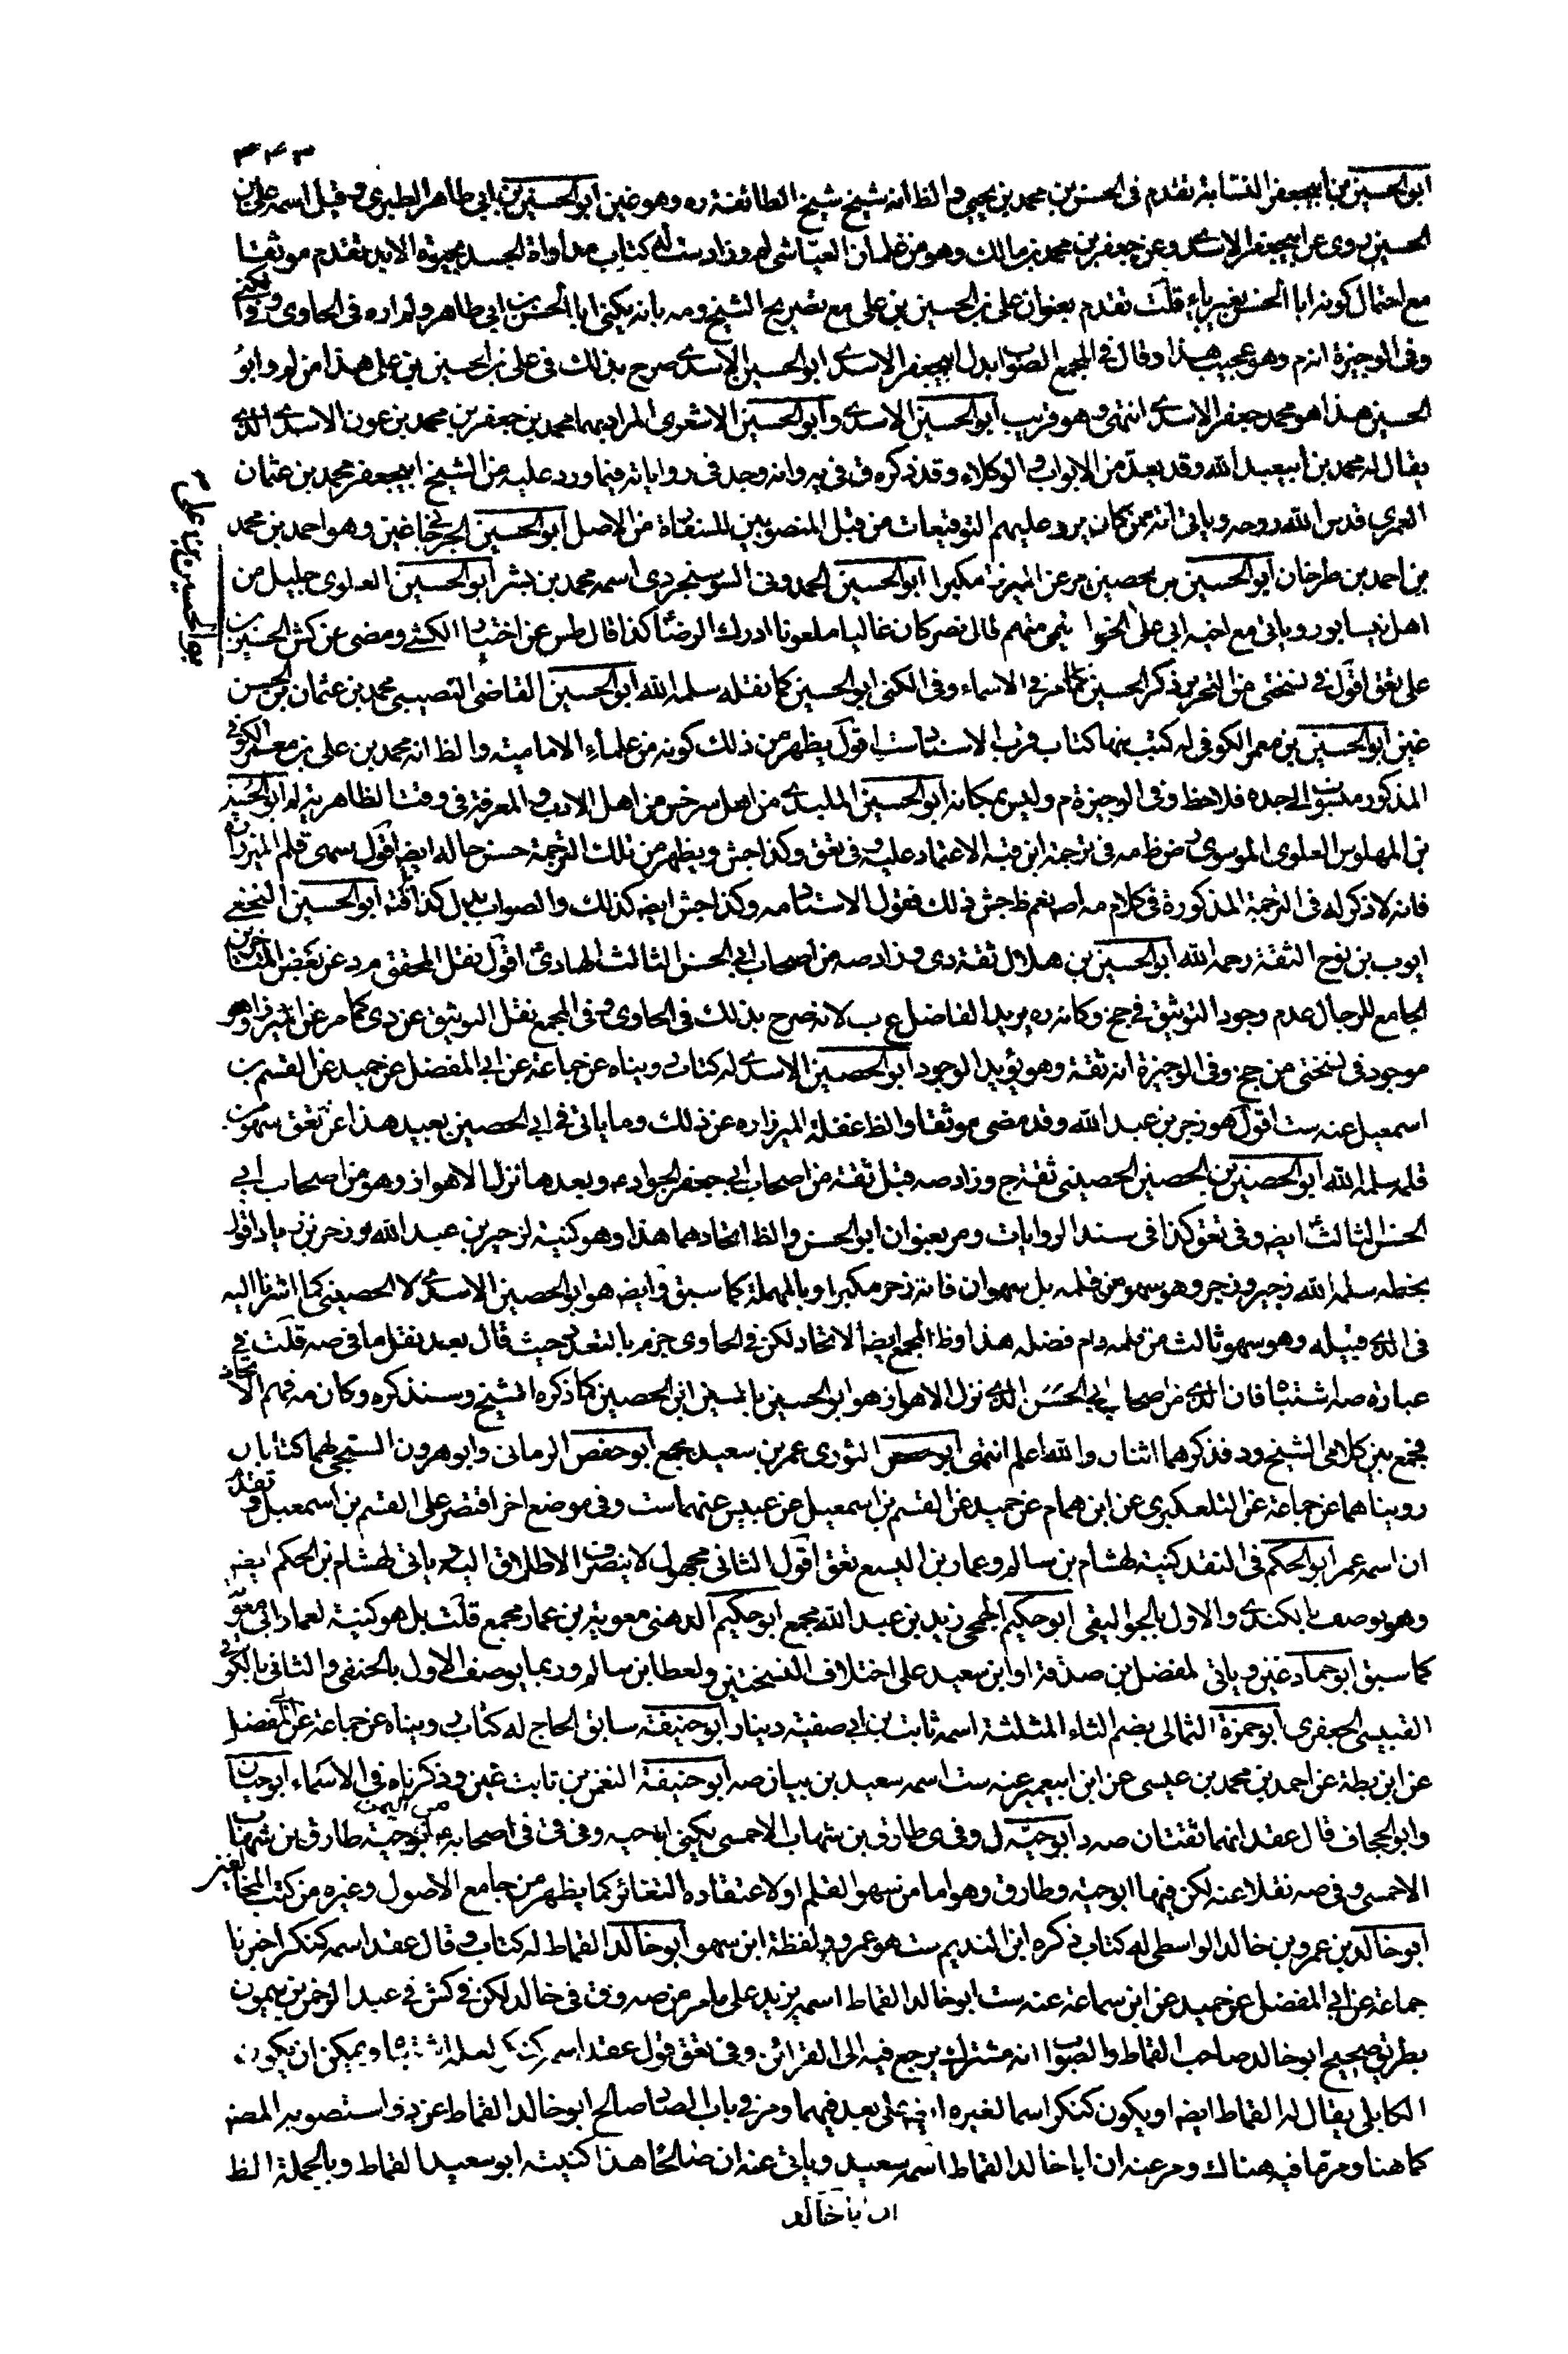 ٣٤٣
ابو الحسين بن ابي جعفر النسابة تقدم في الحسن بن محمد بن يحيى والظ انه شيخ شيخ الطائفة ره وهو غين ابو الحسين بن ابي طاهر الطبري وقيل اسمه علي بن
الحسين يروي عن ابي جعفر الاسدي وعن جعفر بن محمد بن مالك وهو من غلمان العياشي لم وزاد ست له كتاب مداواة الجسد لحيوة الابد تقدم موثقا
مع احتمال كونه ابا الحسن بغير ياء قلت تقدم بعنوان علي بن الحسين بن علي مع تصريح الشيخ ومه بانه يكنى ابا الحسن بن ابي طاهر ولم اره في الحاوي في
وفي الوجيزة انه م وهو عجيب هذا وقال في المجمع الصواب بدل ابي جعفر الاسدي ابو الحسين الاسدي صرح بذلك في علي بن الحسين بن علي هذا من لم وابو
الحسين هذا هو محمد جعفر الاسدي انتهى وهو قريب ابو الحسين الاسدي وابو الحسين الاشعري المراد بهما محمد بن جعفر بن محمد بن عون الاسدي الذي
يقال له محمد بن ابي عبد الله وقد يعد من الابواب والوكلاء وقد ذكره ق في يه وانه وجد في رواياته فيما ورد عليه من الشيخ ابي جعفر محمد بن عثمان
العمري قدس الله روحه وياتي انه ممن كان يرد عليهم التوقيعات من قبل المنصوبين للسفارة من الاصل ابو الحسين الجرجاني غين وهو احمد بن محمد
بن احمد بن طرخان ابو الحسين بن حصين مر عن الميرزا مكبرا ابو الحسين الحمدوني السوسنجردي اسمه محمد بن بشر ابو الحسين العلوي جليل من
اهل نيسابور وياتي مع اخيه ابي علي الخوا متهم قال نصر كان غاليا ملعونا ادرك الرضا كذا قال طس عن اختيار الكشي ومضى عن كش الحسين بن
علي تعق اقول في نسختي من التحرير ذكر الحسين كما مر في الاسماء وفي الكنى ابو الحسين كما نقله سلمه الله ابو الحسين القاضي النصيبي محمد بن عثمان بن الحسن
غين ابو الحسين بن معمر الكوفي له كتب منها كتاب قرب الاسناد ست اقول يظهر من ذلك كونه من علماء الامامية والظ انه محمد بن علي بن معمر الكوفي
المذكور منسوبا الى جده فلاحظ وفي الوجيزة م وليس بمكانه ابو الحسين الملبدي من اهل سرخس من اهل الادب والمعرفة في وقت الظاهرية لم ابو الحسين
بن المهلوس العلوي الموسوي رض ظ مه في ترجمة ابن قبة الاعتماد عليه في تعق وكذا جش ويظهر من تلك الترجمة حسن حاله ايض اقول سهى قلم الميرزا
فانه لا ذكر له في الترجمة المذكورة في كلام مه اص نعم ظ جش ذلك فقول الاستاد مه وكذا جش ايض كذلك والصواب بدل كذا ابو الحسين النخعي
ايوب بن نوح الثقة رحمه الله ابو الحسين بن هلال ثقة دي وزاد صه من اصحاب ابي الحسن الثالث الهادي اقول نقل المحقق مر د عن بعض المتاخرين
الجامع للرجال عدم وجود التوثيق في جخ وكانه ره يريد الفاضل ع ب لانه صرح بذلك في الحاوي وفي المجمع نقل التوثيق عن دي كما مر عن الميرزا وهو
موجود في نسختي من جخ وفي الوجيزة انه ثقة وهو يؤيد الوجود ابو الحصين الاسدي له كتاب رويناه عن جماعة عن ابي المفضل عن حميد عن القسم بن
اسمعيل عنه ست اقول هو زحر بن عبد الله وقد مضى موثقا والظ غفلة الميرزا ره عن ذلك وما ياتي في ابي الحصين بعيد هذا عن تعق سهو من
قلمه سلمه الله ابو الحصين بن الحصين الحصيني ثقة ج وزاد صه قبل ثقة من اصحاب ابي جعفر الجواد ع وبعدها نزل الاهواز وهو من اصحاب ابي
الحسن الثالث ايض وفي تعق كذا في سند الروايات ومر بعنوان ابو الحسن والظ اتحادهما هذا وهو كنية لزحير بن عبد الله وزحر بن زياد اقول
بخطه سلمه الله زحير وزحر وهو سهو من قلمه بل سهوان فانه زحر مكبرا وبالمهملة كما سبق وايض هو ابو الحصين الاسدي لا الحصيني كما اشرنا اليه
في الذي قبيله وهو سهو ثالث من قلمه دام فضله هذا وظ المجمع ايضا الاتحاد لكن في الحاوي جزم بالتعدد حيث قال بعد نقل ما في صه قلت في
عبارة صه اشتباه فان الذي من اصحاب ابي الحسن الذي نزل الاهواز هو ابو الحسين بالسين ابن الحصين كما ذكره الشيخ وسنذكره وكان مه فهم الاتحاد
فجمع بين كلامي الشيخ ود فذكرهما اثنان والله اعلم انتهى ابو حفص الثوري عمر بن سعيد مجمع ابو حفص الرماني وابو هرون السنجي لهما كتابان
رويناهما عن جماعة عن التلعكبري عن ابن همام عن حميد عن القسم بن اسمعيل عن عبيس عنهما ست وفي موضع اخر اقتصر على القسم بن اسمعيل وتقدم
ان اسمه عمر ابو الحكم في النقد كنية لهشام بن سالم وعمار بن اليسع تعق اقول الثاني مجهول لا ينصرف الاطلاق اليه ياتي لهشام بن الحكم ايض
وهو يوصف بالكندي والاول بالجواليقي ابو حكيم الجمحي زيد بن عبد الله مجمع ابو حكيم الدهني معوية بن عمار مجمع قلت بل هو كنية لعمار ابي معوية
كما سبق ابو حماد غين وياتي لمفضل بن صدقة او ابن سعيد على اختلاف النسختين ولعطا بن سالم وربما يوصف الاول بالحنفي والثاني بالكوفي
القبيسي الجعفري ابو حمزة الثمالي بضم الثاء المثلثة اسمه ثابت بن ابي صفية دينار ابو حنيفة سابق الحاج له كتاب رويناه عن جماعة عن ابي المفضل
عن ابن بطة عن احمد بن محمد بن عيسى عن ابن ابي عمير عنه ست اسمه سعيد بن بيان صه ابو حنيفة النعمن بن ثابت غين وذكرناه في الاسماء ابو حيان
وابو الحجاف قال عقد انهما ثقتان صه د ابو حية ل وفي ى طارق بن شهاب الاحمسي يكنى ابا حيه وفي ق في اصحابه ع من اليمن ابو حية طارق بن شهاب
الاحمسي وفي صه نقلا عنه لكن فيها ابو حية وطارق وهو اما من سهو القلم او لاعتقاده التغائر كما يظهر من جامع الاصول وغيره من كتب المخالفين
ابو خالد بن عمرو بن خالد الواسطي له كتاب ذكره ابن النديم ست هو عمرو ولفظة ابن سهو ابو خالد القماط له كتاب وقال عقد اسمه كنكر اخبرنا
جماعة عن ابي المفضل عن حميد عن ابن سماعة عنه ست ابو خالد القماط اسمه يزيد على ما مر من صه وق في خالد لكن في كش في عبد الرحمن بن ميمون
بطريق صحيح ابو خالد صاحب القماط والصواب انه مشترك يرجع فيه الى القرائن وفي تعق قول عقد اسمه كنكر لعله اشتباه ويمكن ان يكون
الكابلي يقال له القماط ايض او يكون كنكر اسما لغيره ايض على بعد فيهما ومر في باب الصاد صالح ابو خالد القماط عن يه واستصوبه المصنف
كما هنا ومر ما فيه هناك ومر عنه ان ابا خالد القماط اسمه سعيد وياتي عنه ان صالحا هذا كنيته ابو سعيد القماط وبالجملة الظ
ان ابا خالد